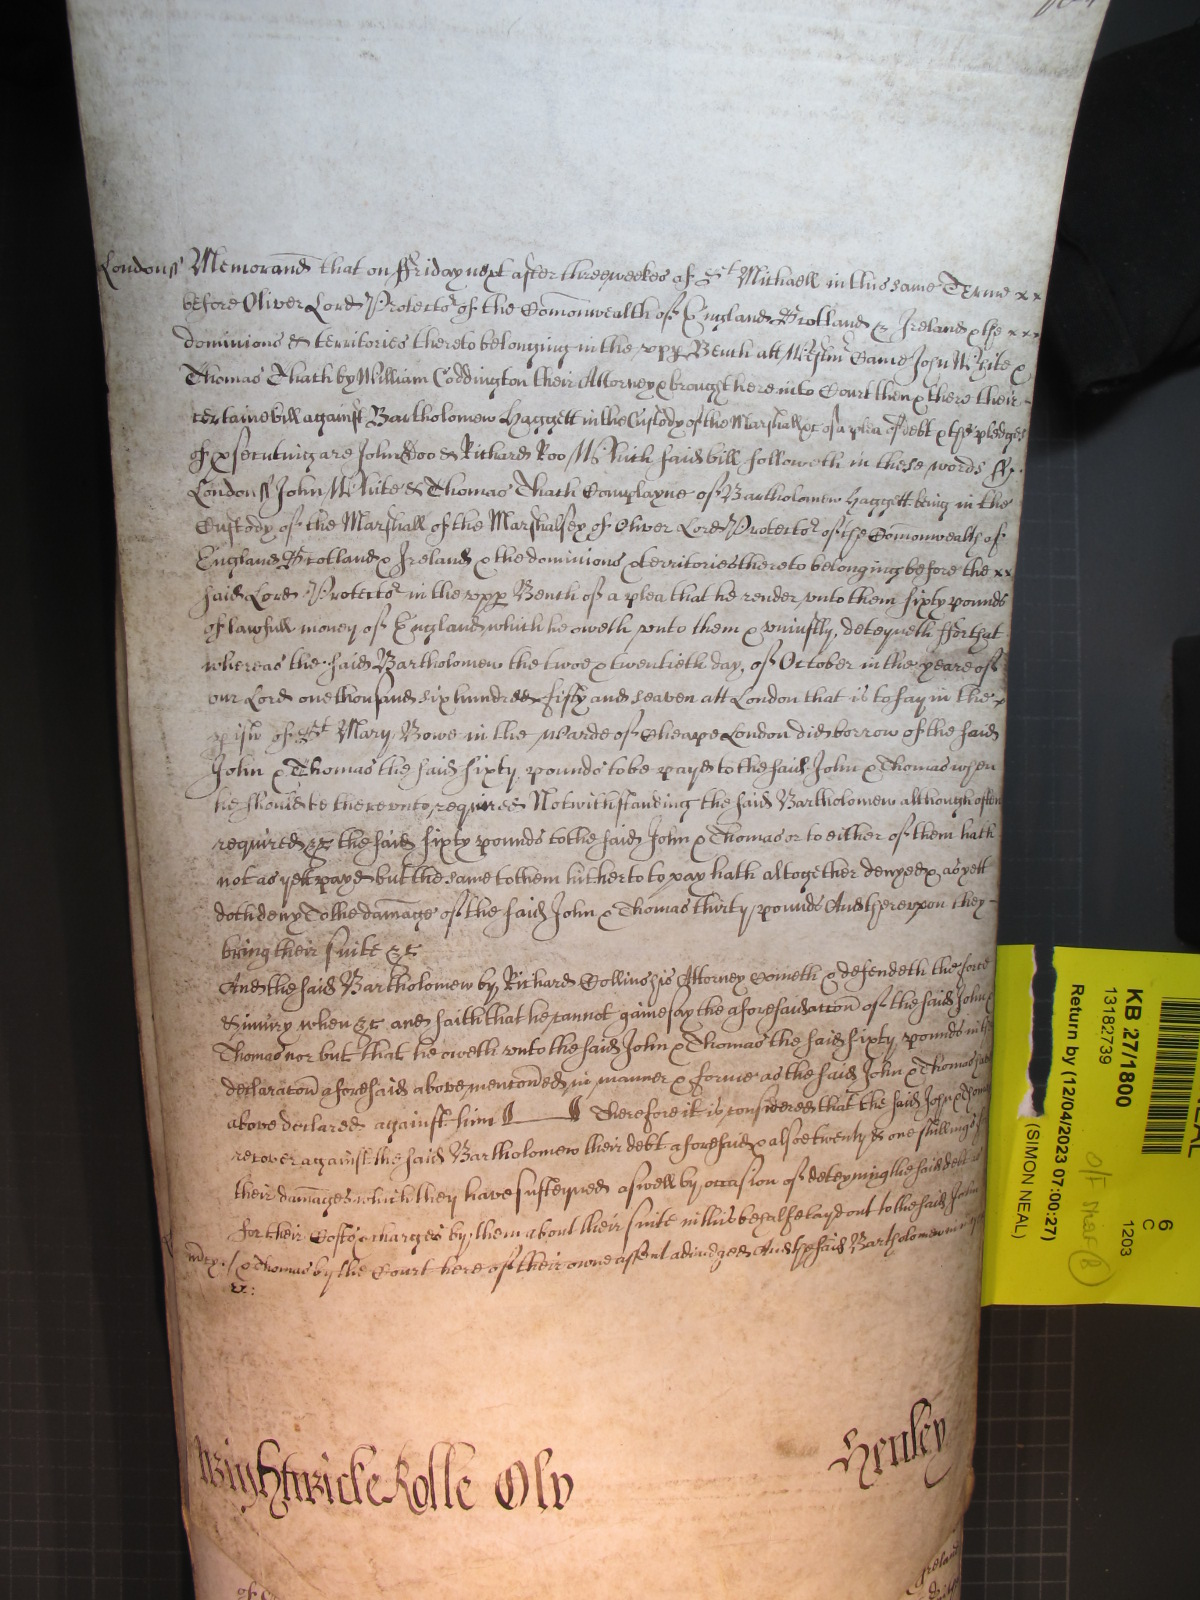 London ss Memorand that on ffriday next after three weekes of St Michaell in this same Terme x x
before Oliver Lord Protector of the Comonwealth of England Scotland & Ireland & the x x x
dominions & territories thereto belonging in the upp Bench att Westm Came John White &
Thomas Thath by William Coddington their Attorney & brought here into Court then & there their
certaine bill against Bartholomew Haggett in the Custody of the Marshall &c of a plea of debt & the pledges
of psecuting are John Doo & Richard Roo Which said bill followeth in these words ss
London ss John White & Thomas Thath Complayne of Bartholomew Haggett being in the
Custody of the Marshall of the Marshalsey of Oliver Lord Protector of the Comonwealth of
England Scotland & Ireland & the dominions & territories thereto belonging before the x x
said Lord Protector in the upp Bench of a plea that he render unto them sixty pounds
of lawfull money of England which he oweth unto them & uniustly deteyneth ffor that
whereas the said Bartholomew the twoe & twentieth day of October in the yeare of
our Lord one thousand six hundred fifty and seaven att London that is to say in the
pish of St Mary Bowe in the warde of Cheape London did borrow of the said
John & Thomas the said sixty pounds to be payd to the said John & Thomas when
he should be thereunto required Notwithstanding the said Bartholomew although often
required &c the said sixty pounds to the said John & Thomas or to either of them hath
not as yett payd but the same to them hitherto to pay hath altogether denyed & as yett
doth deny To the damage of the said John & Thomas thirty pounds And thereupon they
bring their suite &c
And the said Bartholomew by Richard Collins his Attorney Cometh & defendeth the force
& iniury when &c and saith that he cannot gainesay the aforesaid accon of the said John &
Thomas nor but that he oweth unto the said John & Thomas the said sixty pounds in the
declaracon aforesaid above menconed in manner & forme as the said John & Thomas have
above declared against him Therefore it is considered that the said John & Thomas
recover against the said Bartholomew their debt aforesaid & alsoe twenty & one shillings for
their damages which they have susteyned aswell by occasion of deteyning the said debt as
for their Costs & charges by them about their suite in this behalfe layd out to the said John
& Thomas by the Court here of their owne assent adiudged And the said Bartholomew in mcy
&c:
Wightwicke Rolle Olv
Henley
KB 27/1800
13182739
Return by (12/04/2023 07:00:27)
(SIMON NEAL)
6
C
1203